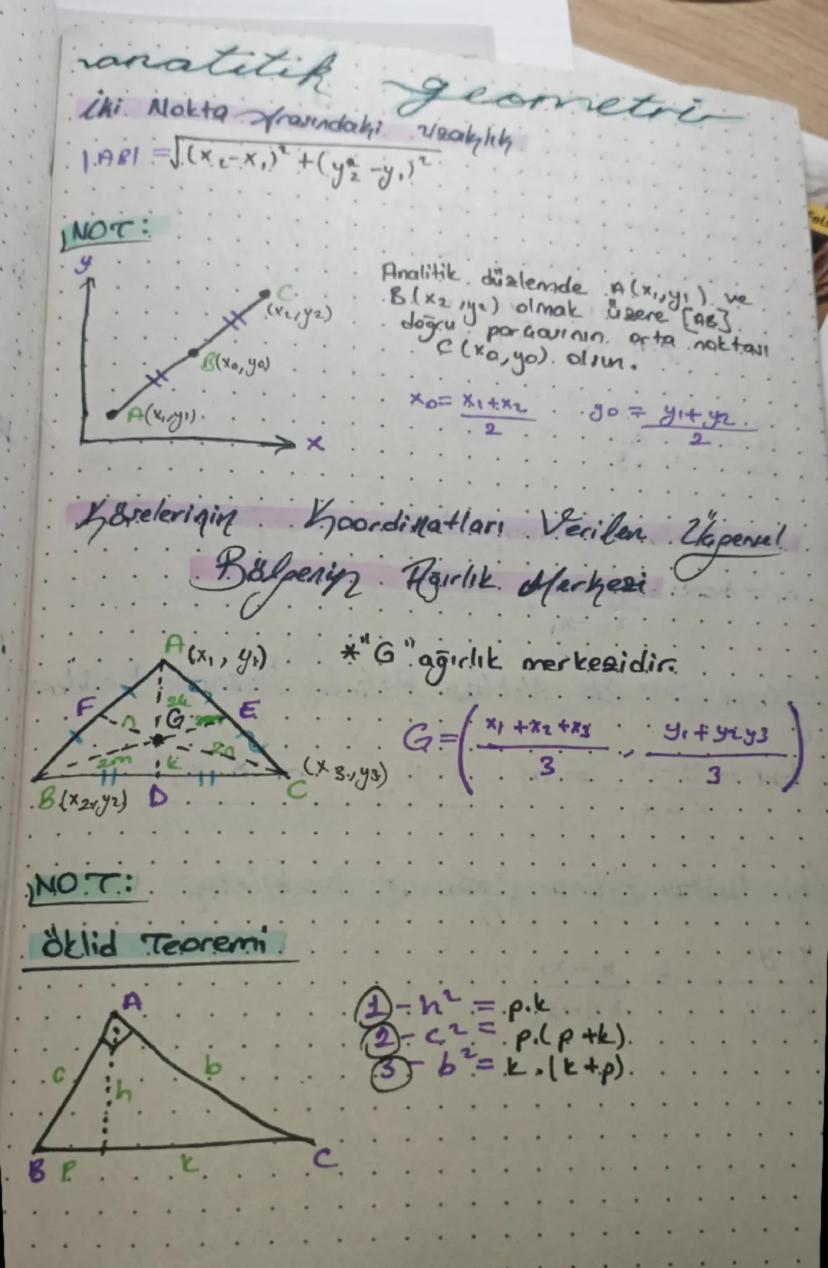 analitik geometri
İki Nokta Arasındaki Uzaklık
|AB| = √(x₂-x₁)² + (y₂²-y₁)²
NOT:
y
C
(x₂,y₂)
B(x₀,y₀)
A(x₁,y₁)
x
Analitik düzlemde A(x₁,y₁) ve
B(x₂,y₂) olmak üzere [AB]
doğru parçasının orta noktası
C(x₀,y₀) olsun.
x₀ = x₁+x₂ / 2   y₀ = y₁+y₂ / 2
Köşelerinin Koordinatları Verilen Üçgensel
Bölgenin Ağırlık Merkezi
A(x₁, y₁)
F
E
2k
n
G
2m
k
2n
B(x₂,y₂)
D
C
(x₃,y₃)
*"G" ağırlık merkezidir.
G = (x₁+x₂+x₃ / 3, y₁+y₂y₃ / 3)
NOT:
Öklid Teoremi
A
c
b
h
B
p
k
C
1 - h² = p.k
2 - c² = p.(p+k)
3 - b² = k.(k+p)